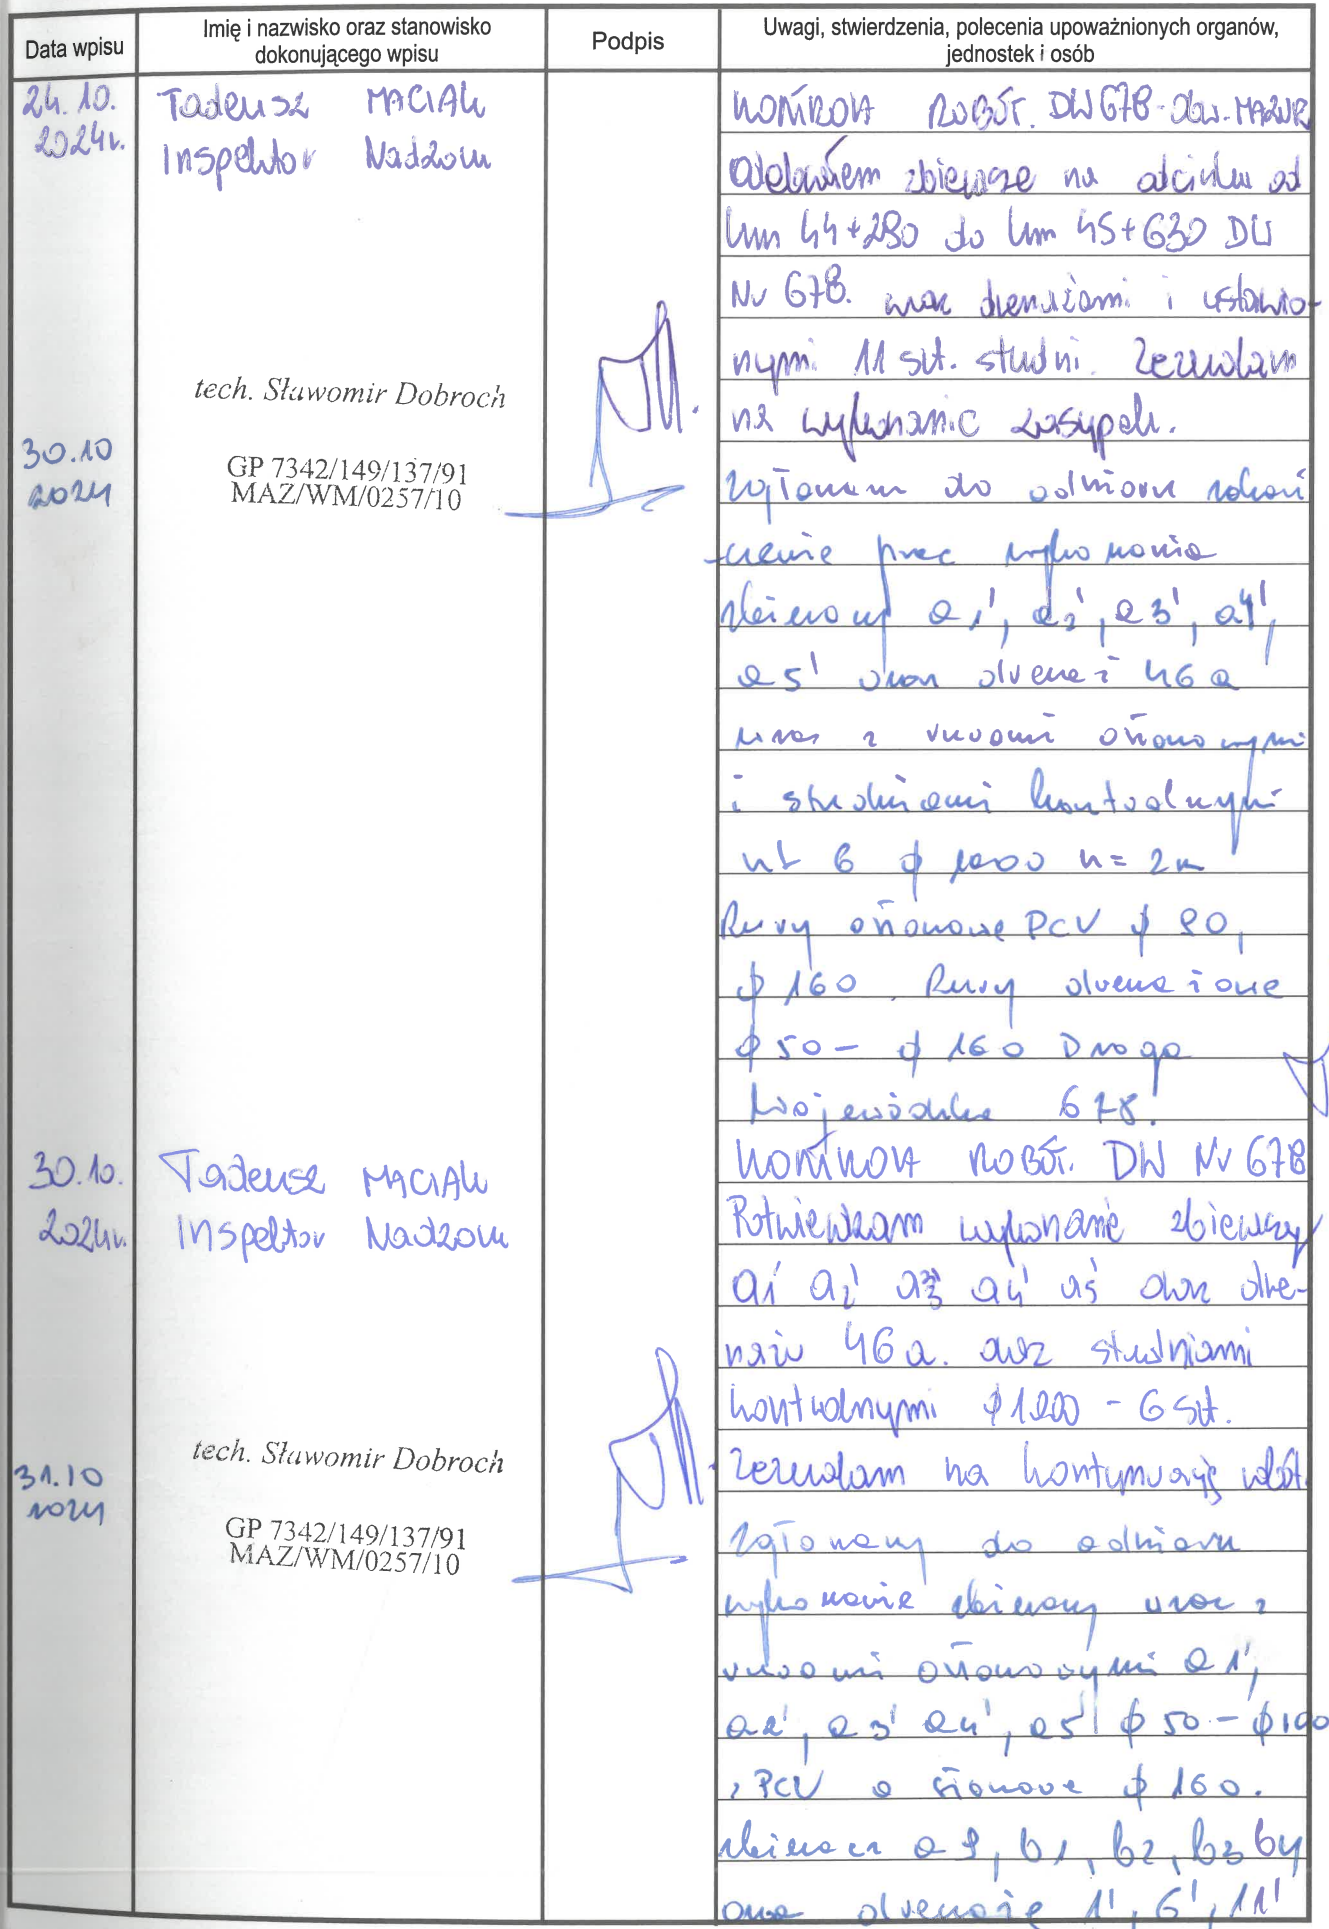 Data wpisu
Imię i nazwisko oraz stanowisko
dokonującego wpisu
Podpis
Uwagi, stwierdzenia, polecenia upoważnionych organów,
jednostek i osób
24.10.
2024r.
Tadeusz MACIAK
Inspektor Nadzoru
KONTROLA ROBÓT. DW678-
Odebrałem zbieracze na odcinku od
km 44+280 do km 45+630 DW
Nr 678. wraz drenażami i ustawio-
nymi 11 szt. studni. Zezwalam
na wykonanie zasypek.
30.10
2024
tech. Sławomir Dobroch
GP 7342/149/137/91
MAZ/WM/0257/10
zgłaszam do odbioru zakoń
-czenie prac wykonania
zbieraczy a1', a2', a3', a4',
a5' oraz drenaż 46a
wraz z rurami osłonowymi
i studniami kontrolnymi
szt 6 ϕ 1000 h= 2m
Rury osłonowe PCV ϕ 90,
ϕ 160. Rury drenażowe
ϕ 50- ϕ 160 Droga
Wojewódzka 678.
30.10.
2024r.
Tadeusz MACIAK
Inspektor Nadzoru
KONTROLA ROBÓT. DW Nr 678
Potwierdzam wykonanie zbieraczy
a1' a2' a3' a4' a5' oraz dre-
nażu 46a. oraz studniami
kontrolnymi ϕ1200 - 6 szt.
Zezwalam na kontynuację robót.
31.10
2024
tech. Sławomir Dobroch
GP 7342/149/137/91
MAZ/WM/0257/10
zgłaszamy do odbioru
wykonanie zbieraczy wraz z
rurami osłonowymi a1',
a2', a3' a4', a5' ϕ 50-ϕ100
z PCV osłonowe ϕ 160.
zbieracz a9, b1, b2, b3 b4
oraz drenaże 1', 6', 11'